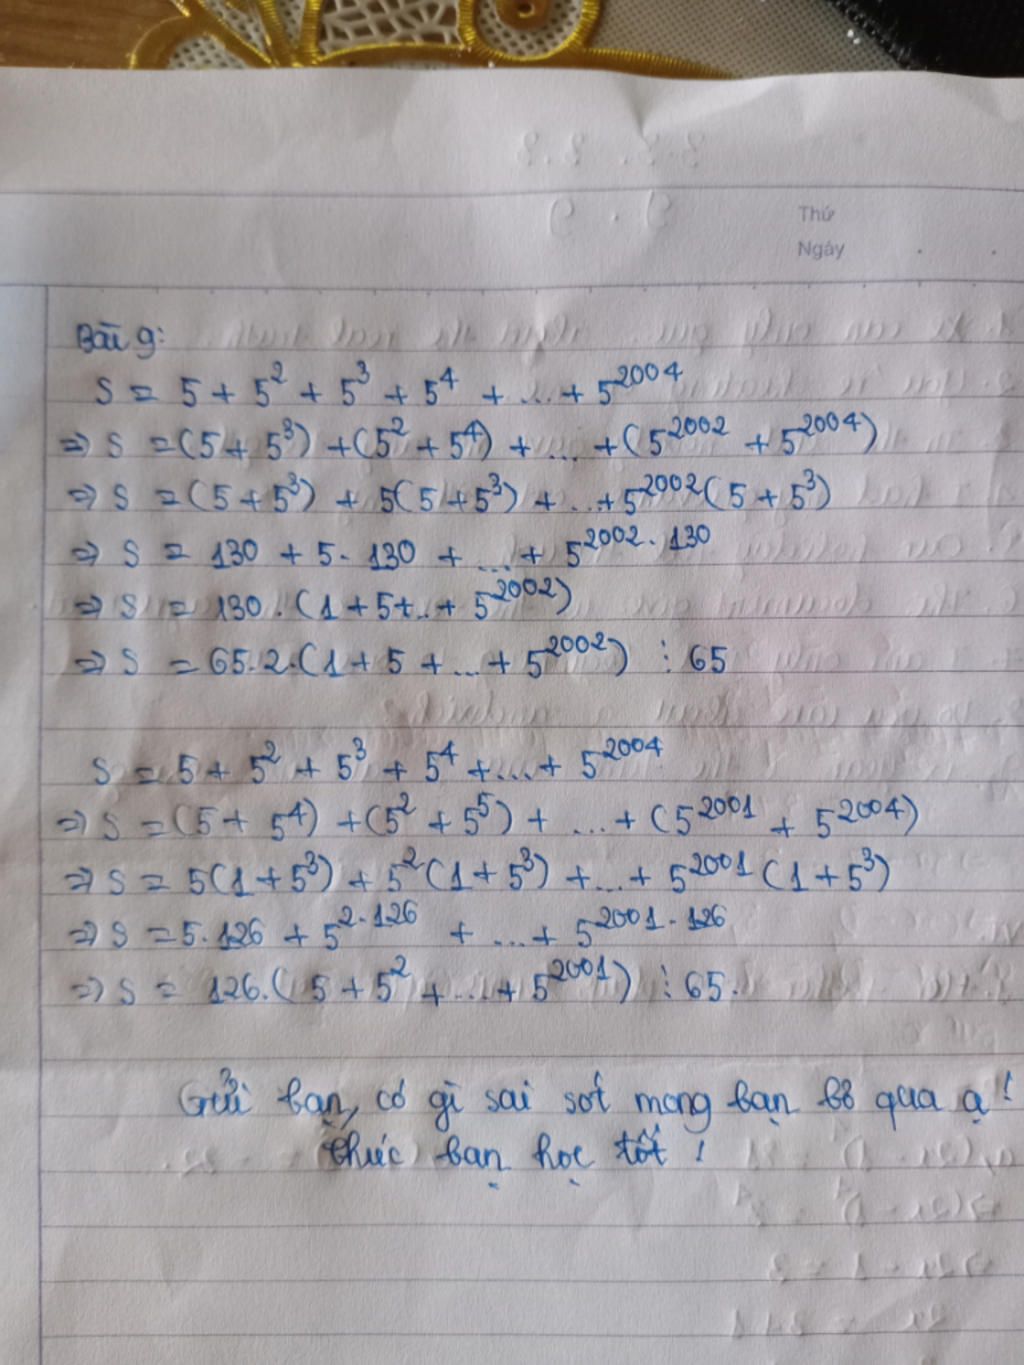 Thứ
Ngày
Bài 9:
S = 5 + 5² + 5³ + 5⁴ + ... + 5²⁰⁰⁴
⇒ S = (5 + 5³) + (5² + 5⁴) + ... + (5²⁰⁰² + 5²⁰⁰⁴)
⇒ S = (5 + 5³) + 5(5 + 5³) + ... + 5²⁰⁰²(5 + 5³)
⇒ S = 130 + 5. 130 + ... + 5²⁰⁰².130
⇒ S = 130.(1 + 5+..+ 5²⁰⁰²)
⇒ S = 65.2.(1 + 5 + ... + 5²⁰⁰²) ⋮ 65
S = 5 + 5² + 5³ + 5⁴ + ... + 5²⁰⁰⁴
⇒ S = (5 + 5⁴) + (5² + 5⁵) + ... + (5²⁰⁰¹ + 5²⁰⁰⁴)
⇒ S = 5(1 + 5³) + 5²(1 + 5³) + ... + 5²⁰⁰¹(1 + 5³)
⇒ S = 5.126 + 5².126 + ... + 5²⁰⁰¹.126
⇒ S = 126.(5 + 5² + ... + 5²⁰⁰¹) ⋮ 65.
Gửi bạn, có gì sai sót mong bạn bỏ qua ạ!
Chúc bạn học tốt!